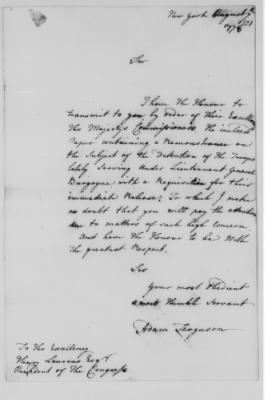 New York August 7th
1778
Sir
I have the Honour to
transmit to you by order of Their Excellencies
The Majesty's Commissioners the inclosed
Paper containing a Remonstrance on
the Subject of the Detention of the Troops
lately Serving under Lieutenant General
Burgoyne; with a Requisition for their
immediate Release; To which I make
no doubt that you will pay the attention
due to matters of such high concern
and have the Honour to be with
the greatest Respect.
Sir
Your most Obedient
& most Humble Servant
Adam Ferguson
To His Excellency
Henry Laurens Esqr
President of the Congress